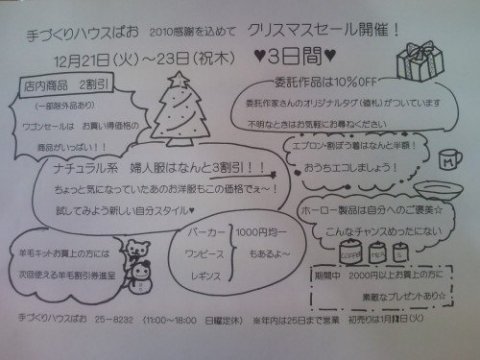 手づくりハウスぱお　2010感謝を込めて　クリスマスセール開催！
12月21日(火)～23日(祝木)　♥3日間♥
店内商品　2割引
(一部除外品あり)
ワゴンセールは　お買い得価格の
商品がいっぱい！！
委託作品は10％OFF
委託作家さんのオリジナルタグ(値札)がついています
不明なときはお気軽にお尋ねください
ナチュラル系　婦人服はなんと3割引！！
ちょっと気になっていたあのお洋服もこの価格でぇ～！
試してみよう新しい自分スタイル♥
エプロン・割ぽう着はなんと半額！
おうちエコしましょう！
M
ホーロー製品は自分へのご褒美☆
こんなチャンスめったにない
COFFEE
TEA
S
羊毛キットお買上の方には
次回使える羊毛割引券進呈
パーカー
ワンピース
レギンス
1000円均一
もあるよ～
期間中　2000円以上お買上の方に
素敵なプレゼントあり☆
手づくりハウスぱお　25-8232　(11:00～18:00　日曜定休)　※年内は25日まで営業　初売りは1月11日(火)